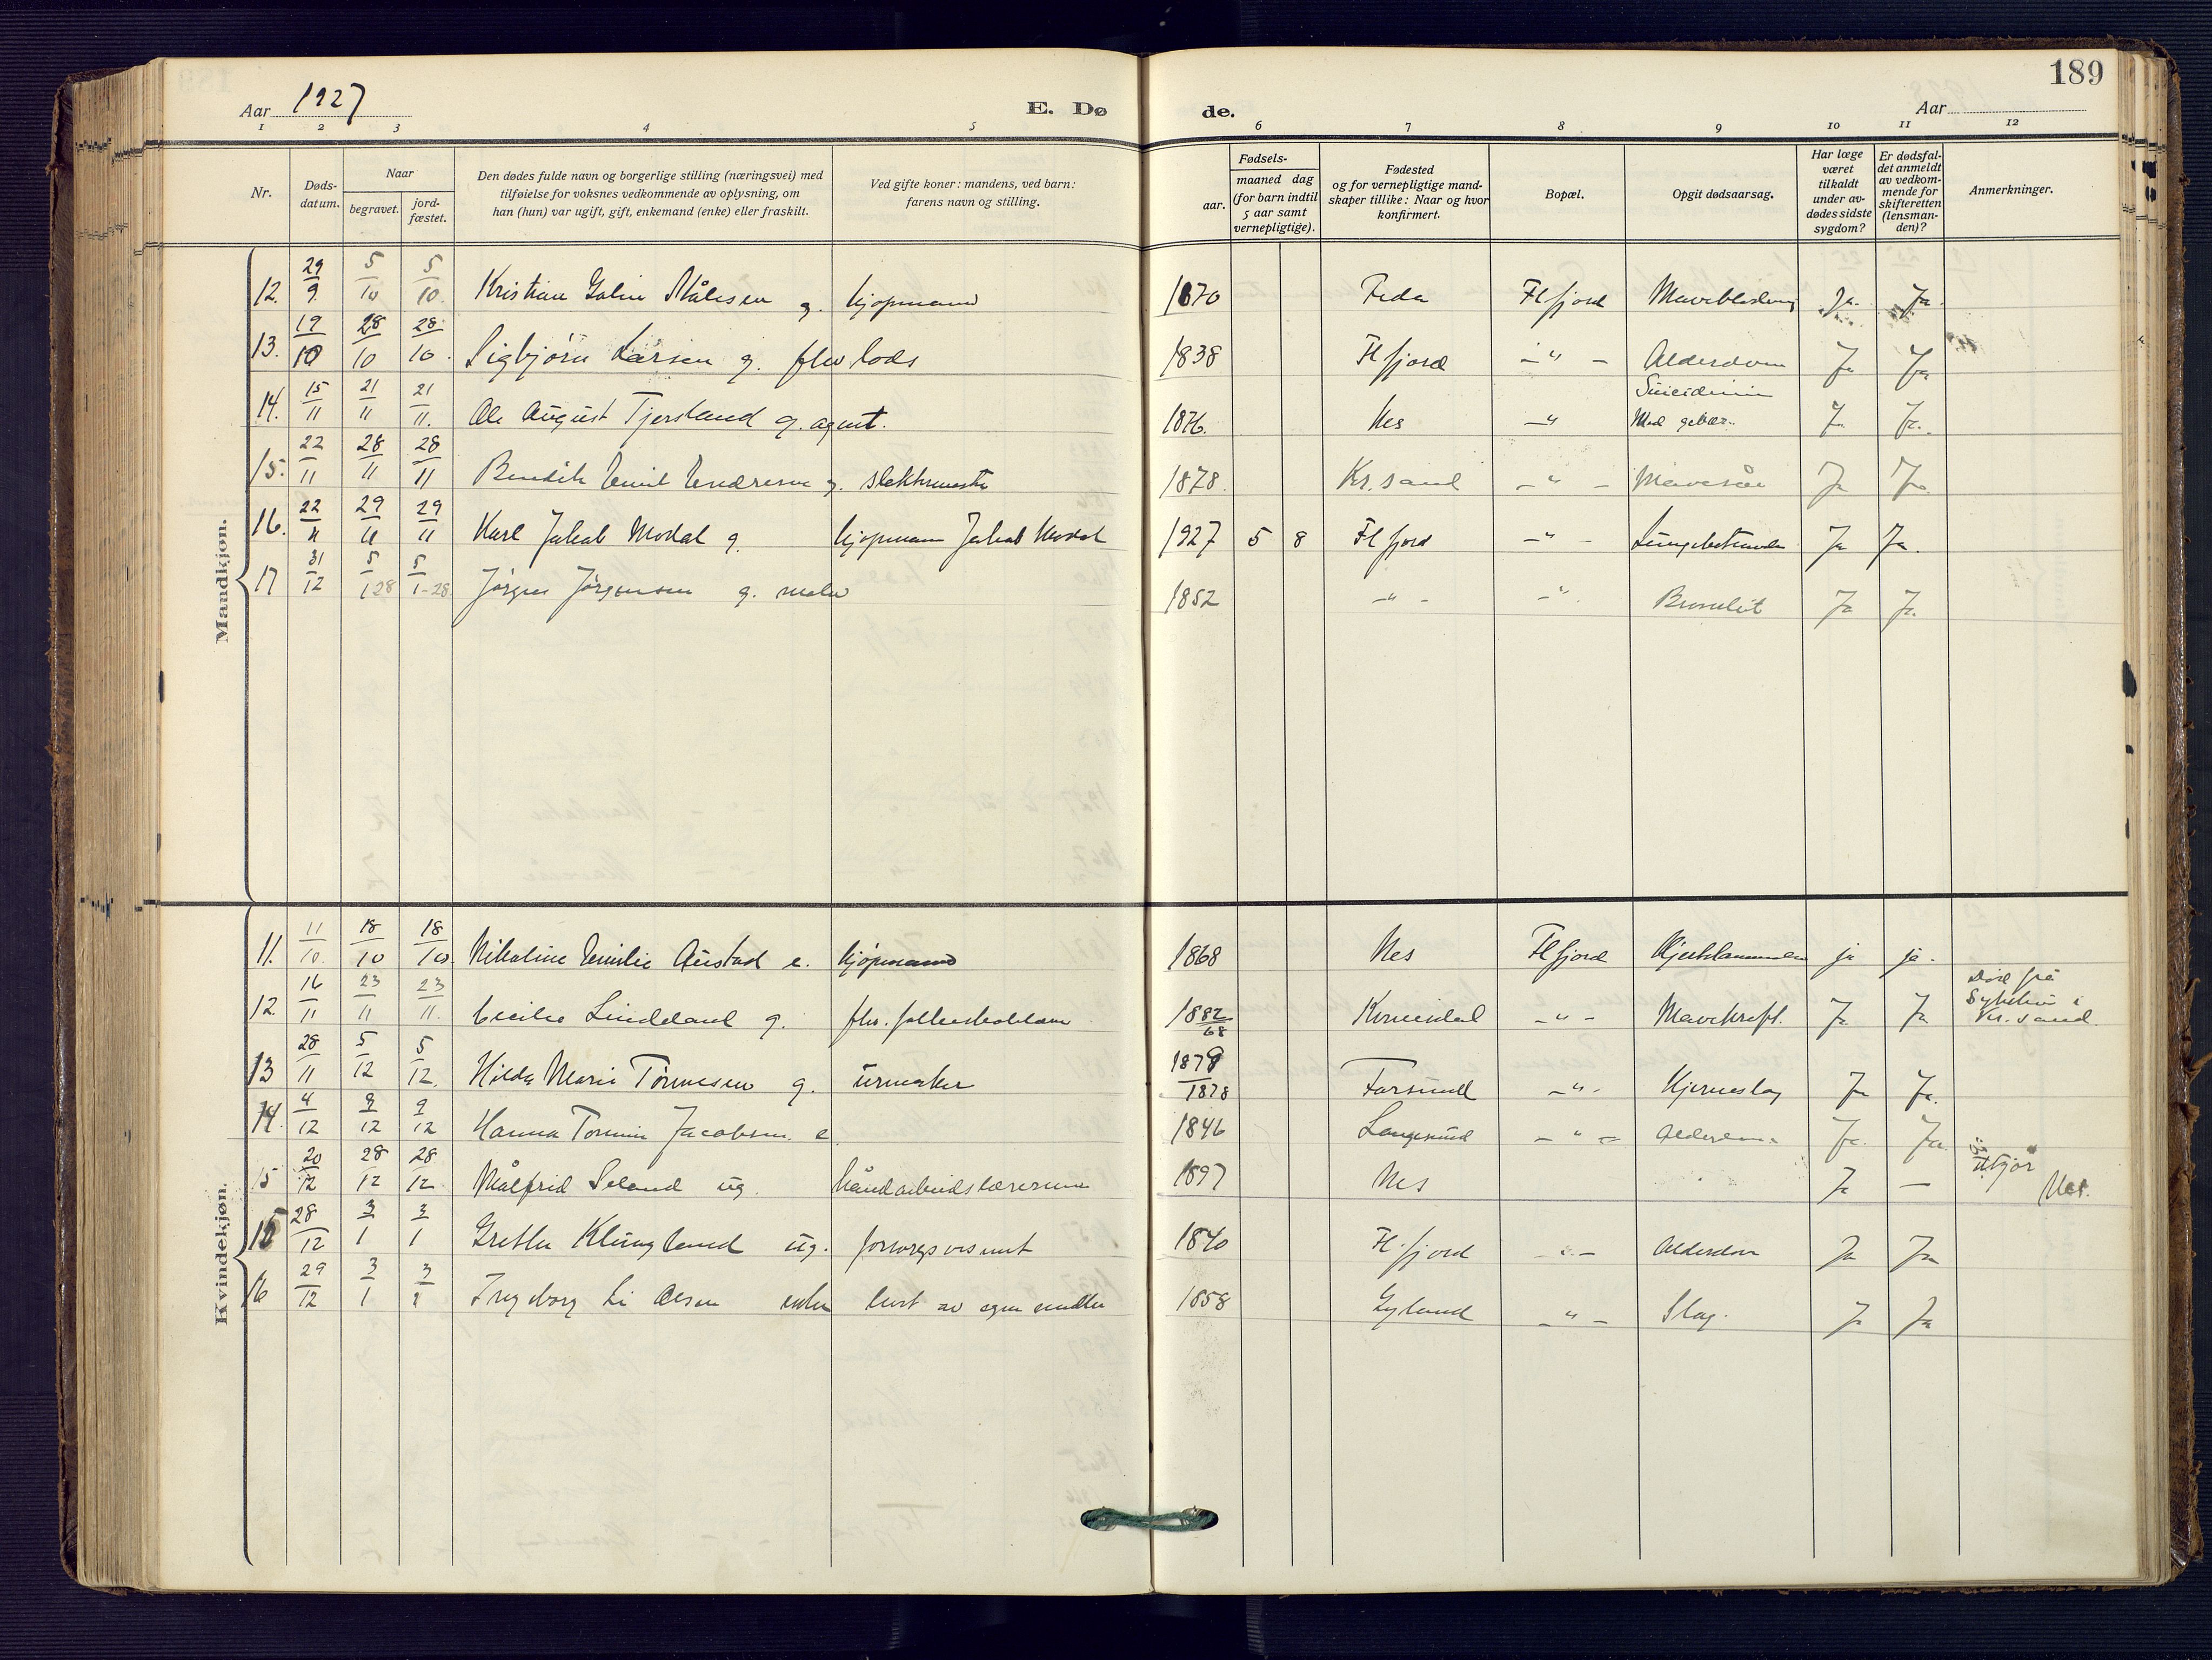 189
Aar 1927
E. Dø de.
Aar
1 2 3 4 5 6 7 8 9 10 11 12
Nr.
Døds-
datum.
Naar
begravet.
jord-
fæstet.
Den dødes fulde navn og borgerlige stilling (næringsvei) med
tilføielse for voksnes vedkommende av oplysning, om
han (hun) var ugift, gift, enkemand (enke) eller fraskilt.
Ved gifte koner: mandens, ved barn:
farens navn og stilling.
Fødsels-
aar.
maaned dag
(for barn indtil
5 aar samt
vernepligtige).
Fødested
og for vernepligtige mand-
skaper tillike: Naar og hvor
konfirmert.
Bopæl.
Opgit dødsaarsag.
Har læge
været
tilkaldt
under av-
dødes sidste
sygdom?
Er dødsfal-
det anmeldt
av vedkom-
mende for
skifteretten
(lensman-
den)?
Anmerkninger.
Mandkjøn.
12. 29/9 5/10 5/10. Kristian g. kjøpmand 1870 Feda Flfjord Maveblødning Ja. Ja.
13. 19/10 28/10 28/10. Sigbjørn Larsen g. flw lods 1838 Flfjord - " - Alderdom Ja Ja
14. 15/11 21/11 21/11. Ole August Tjersland g. agent. 1876. Nes - " Suicidium Ja Ja.
15. 22/11 28/11 28/11 Bendik Emil g. 1878. Kr.sand - " - Mavesår Ja Ja
16. 22/11 29/11 29/11 Karl Jakob Modal g. kjøpmann Jakob Modal 1927 5 8 Flfjord - " - Ja Ja.
17 31/12 5/1 28 5/1-28 Jørgen Jørgensen g. maler 1852 - " - - " - Ja Ja.
Kvindekjøn.
11. 11/10. 18/10 18/10. Nikoline Emilie Austad e. kjøpmand 1868 Nes Flfjord ja ja.
12. 16/11 23/11 23/11. Cecilie Lindeland g. 1882/68 Kvinesdal - " - Mavekreft. Ja Ja Død på
Sykehus i
Kr.sand.
13 28/11 5/12 5/12. Hilda Marie Tønnesen g. urmaker 1879/1878 Farsund - " - Hjerneslag Ja Ja.
14. 4/12 9/12 9/12 Hanna Jacobsen. e. 1846 Langesund - " - Alderdom Ja. Ja.
15 20/12 28/12 28/12 Målfrid Seland ug. håndarbeidslærerinne 1897 Nes Ja - Utgjør
Nes.
15 28/12 3/1 3/1 Grethe Klungland ug. 1840 Fl.fjord - " - Alderdom Ja Ja
16 29/12 3/1 3/1 Ingeborg Li Olsen enke levet av egne midler 1858 Gyland - " - Slag. Ja Ja